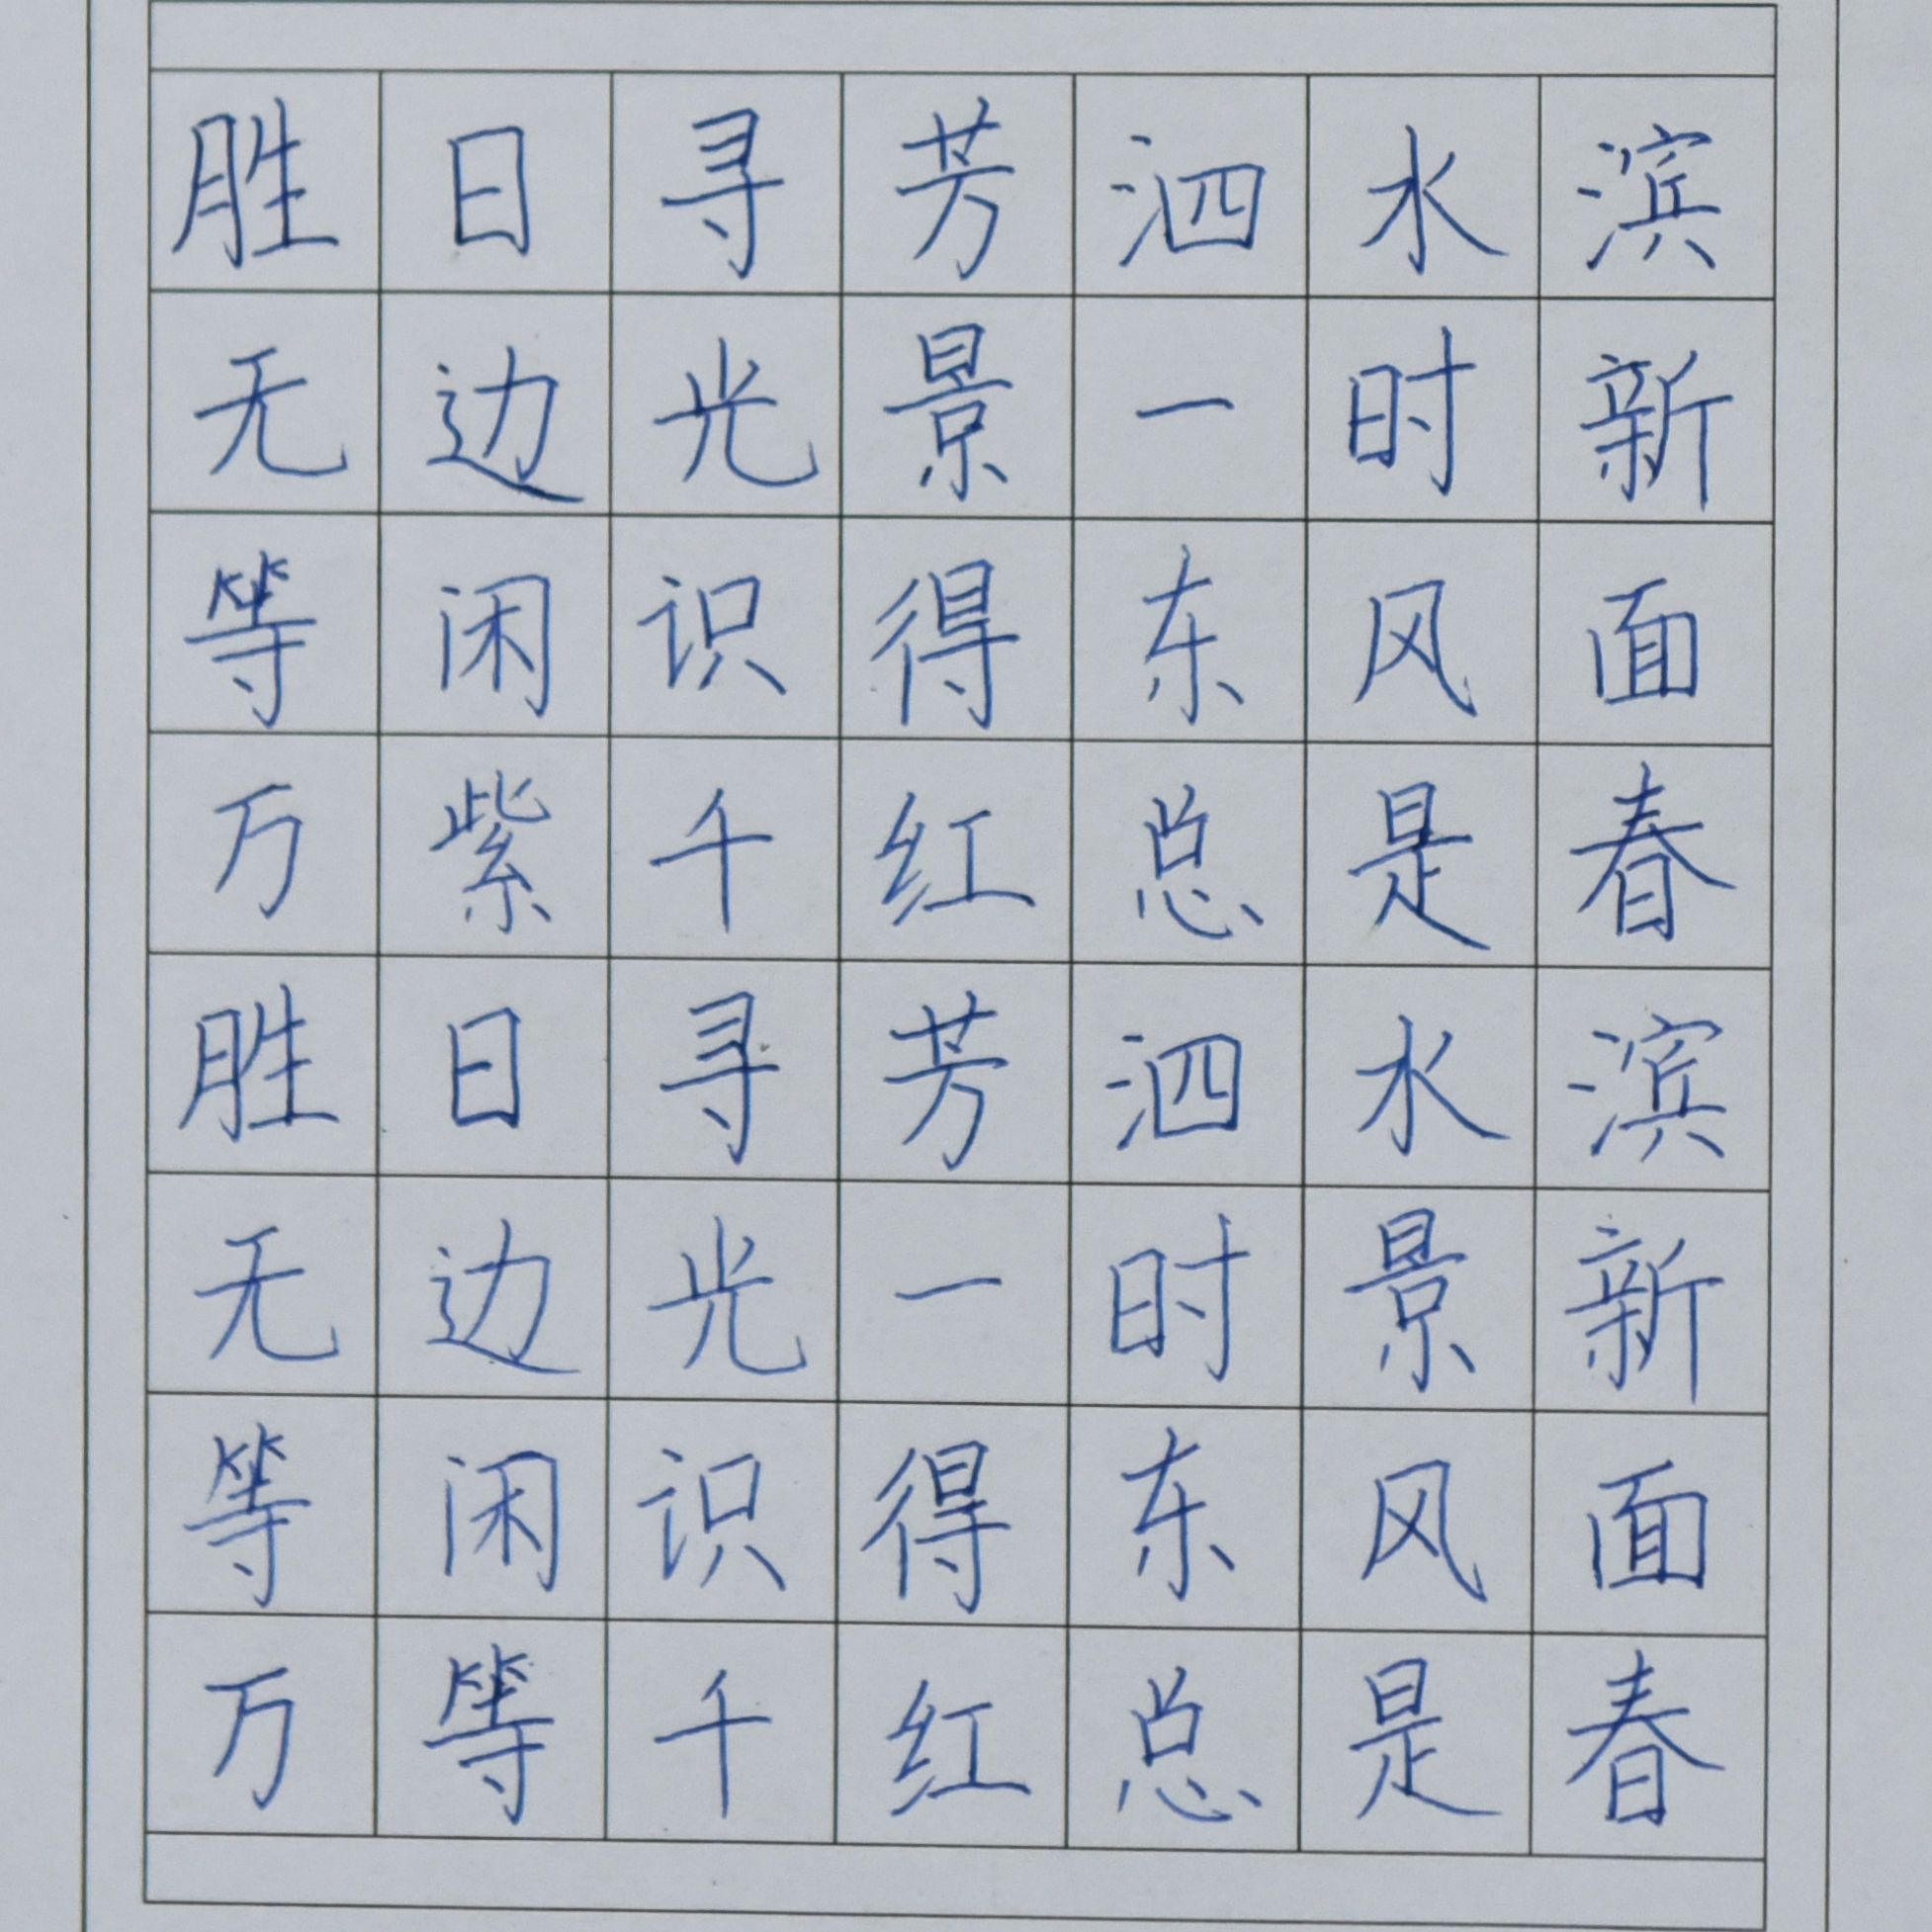 胜日寻芳泗水滨
无边光景一时新
等闲识得东风面
万紫千红总是春
胜日寻芳泗水滨
无边光一时景新
等闲识得东风面
万等千红总是春